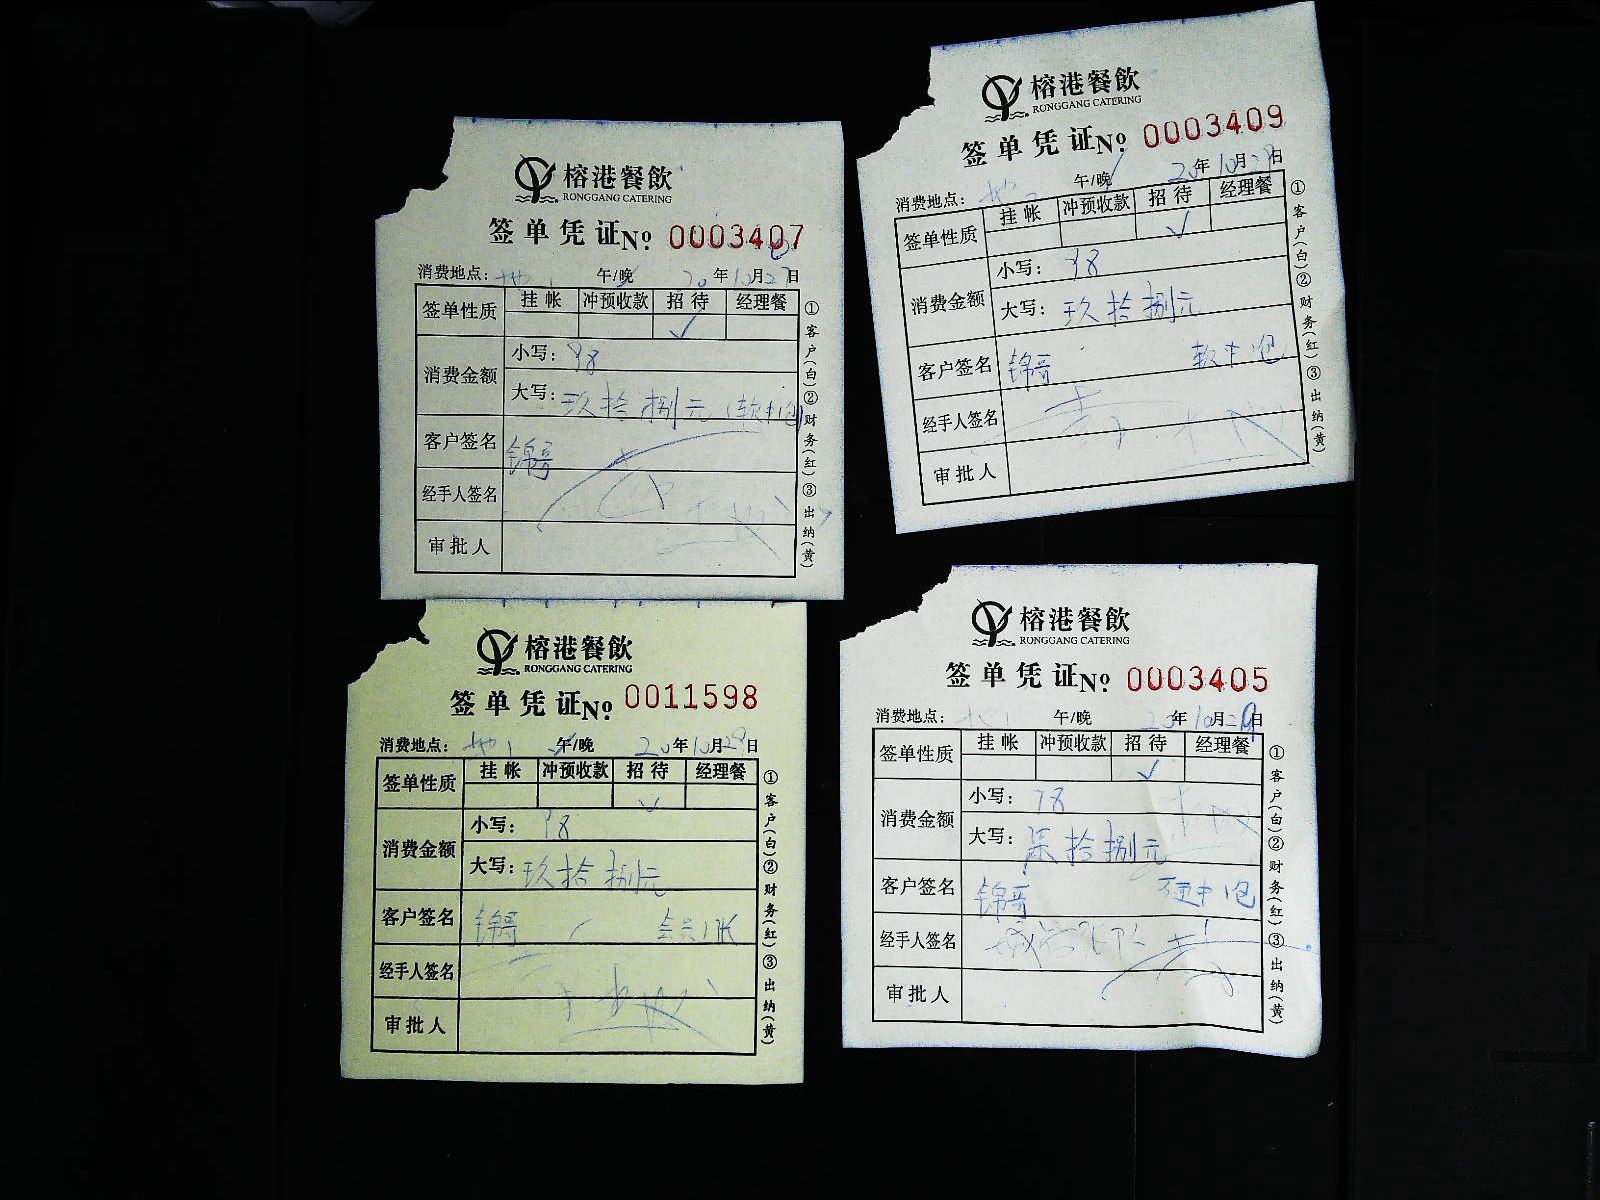 榕港餐飲
RONGGANG CATERING
签单凭证 No 0003407
消费地点: 午/晚 20年10月27日
签单性质 挂帐 冲预收款 招待 经理餐
✓
消费金额 小写: 98
大写: 玖拾捌元(软中1包)
客户签名 锦哥
经手人签名
审批人
①客户(白)②财务(红)③出纳(黄)
榕港餐飲
RONGGANG CATERING
签单凭证 No 0003409
消费地点: 午/晚 20年10月29日
签单性质 挂帐 冲预收款 招待 经理餐
✓
消费金额 小写: 98
大写: 玖拾捌元
客户签名 锦哥 软中1包
经手人签名
审批人
①客户(白)②财务(红)③出纳(黄)
榕港餐飲
RONGGANG CATERING
签单凭证 No 0011598
消费地点: 午/晚 20年10月29日
签单性质 挂帐 冲预收款 招待 经理餐
✓
消费金额 小写: 98
大写: 玖拾捌元
客户签名 锦哥 会员1张
经手人签名
审批人
①客户(白)②财务(红)③出纳(黄)
榕港餐飲
RONGGANG CATERING
签单凭证 No 0003405
消费地点: 午/晚 20年10月29日
签单性质 挂帐 冲预收款 招待 经理餐
✓
消费金额 小写: 78
大写: 柒拾捌元
客户签名 锦哥 硬中1包
经手人签名
审批人
①客户(白)②财务(红)③出纳(黄)